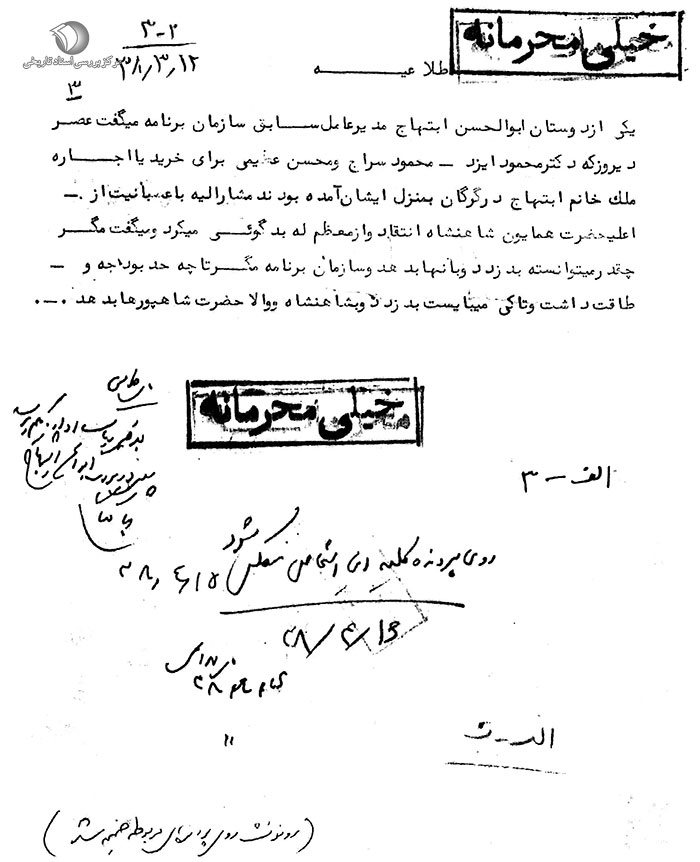 خیلی محرمانه
۲-۳
۳۸/۳/۱۲
مرکز بررسی اسناد تاریخی
طلاعیـــــه
۳
یکی ازدوستان ابوالحسن ابتهاج مدیرعامل ســابق سازمان برنامه میگفت عصر
دیروزکه دکترمحمود ایزد ـ محمود سراج ومحسن عظیمی برای خرید یا اجــاره
ملك خانم ابتهاج درگرگان بمنزل ایشان آمده بودند مشارالیه باعصبانیت از ـ
اعلیحضرت همایون شاهنشاه انتقاد وازمعظم له بدگوئــی میکرد ومیگفت مگــر
چقدرمیتوانسته بدزدد وبانهابدهد وسازمان برنامه مگــرتاچه حد بودجه و ـ
طاقت داشت وتاکی میبایست بدزدد وبشاهنشاه ووالاحضرت شاهپورهابدهد ۰ـ۰
خیلی محرمانه
الف - ۳
روی پرونده کلیه این اشخاص منعکس شود
۳۸/۴/۱۷
۳۸/۴/۱۶
بایگانی
"
الف - ث
(رونوشت روی پرونده‌های مربوطه ضمیمه شد)